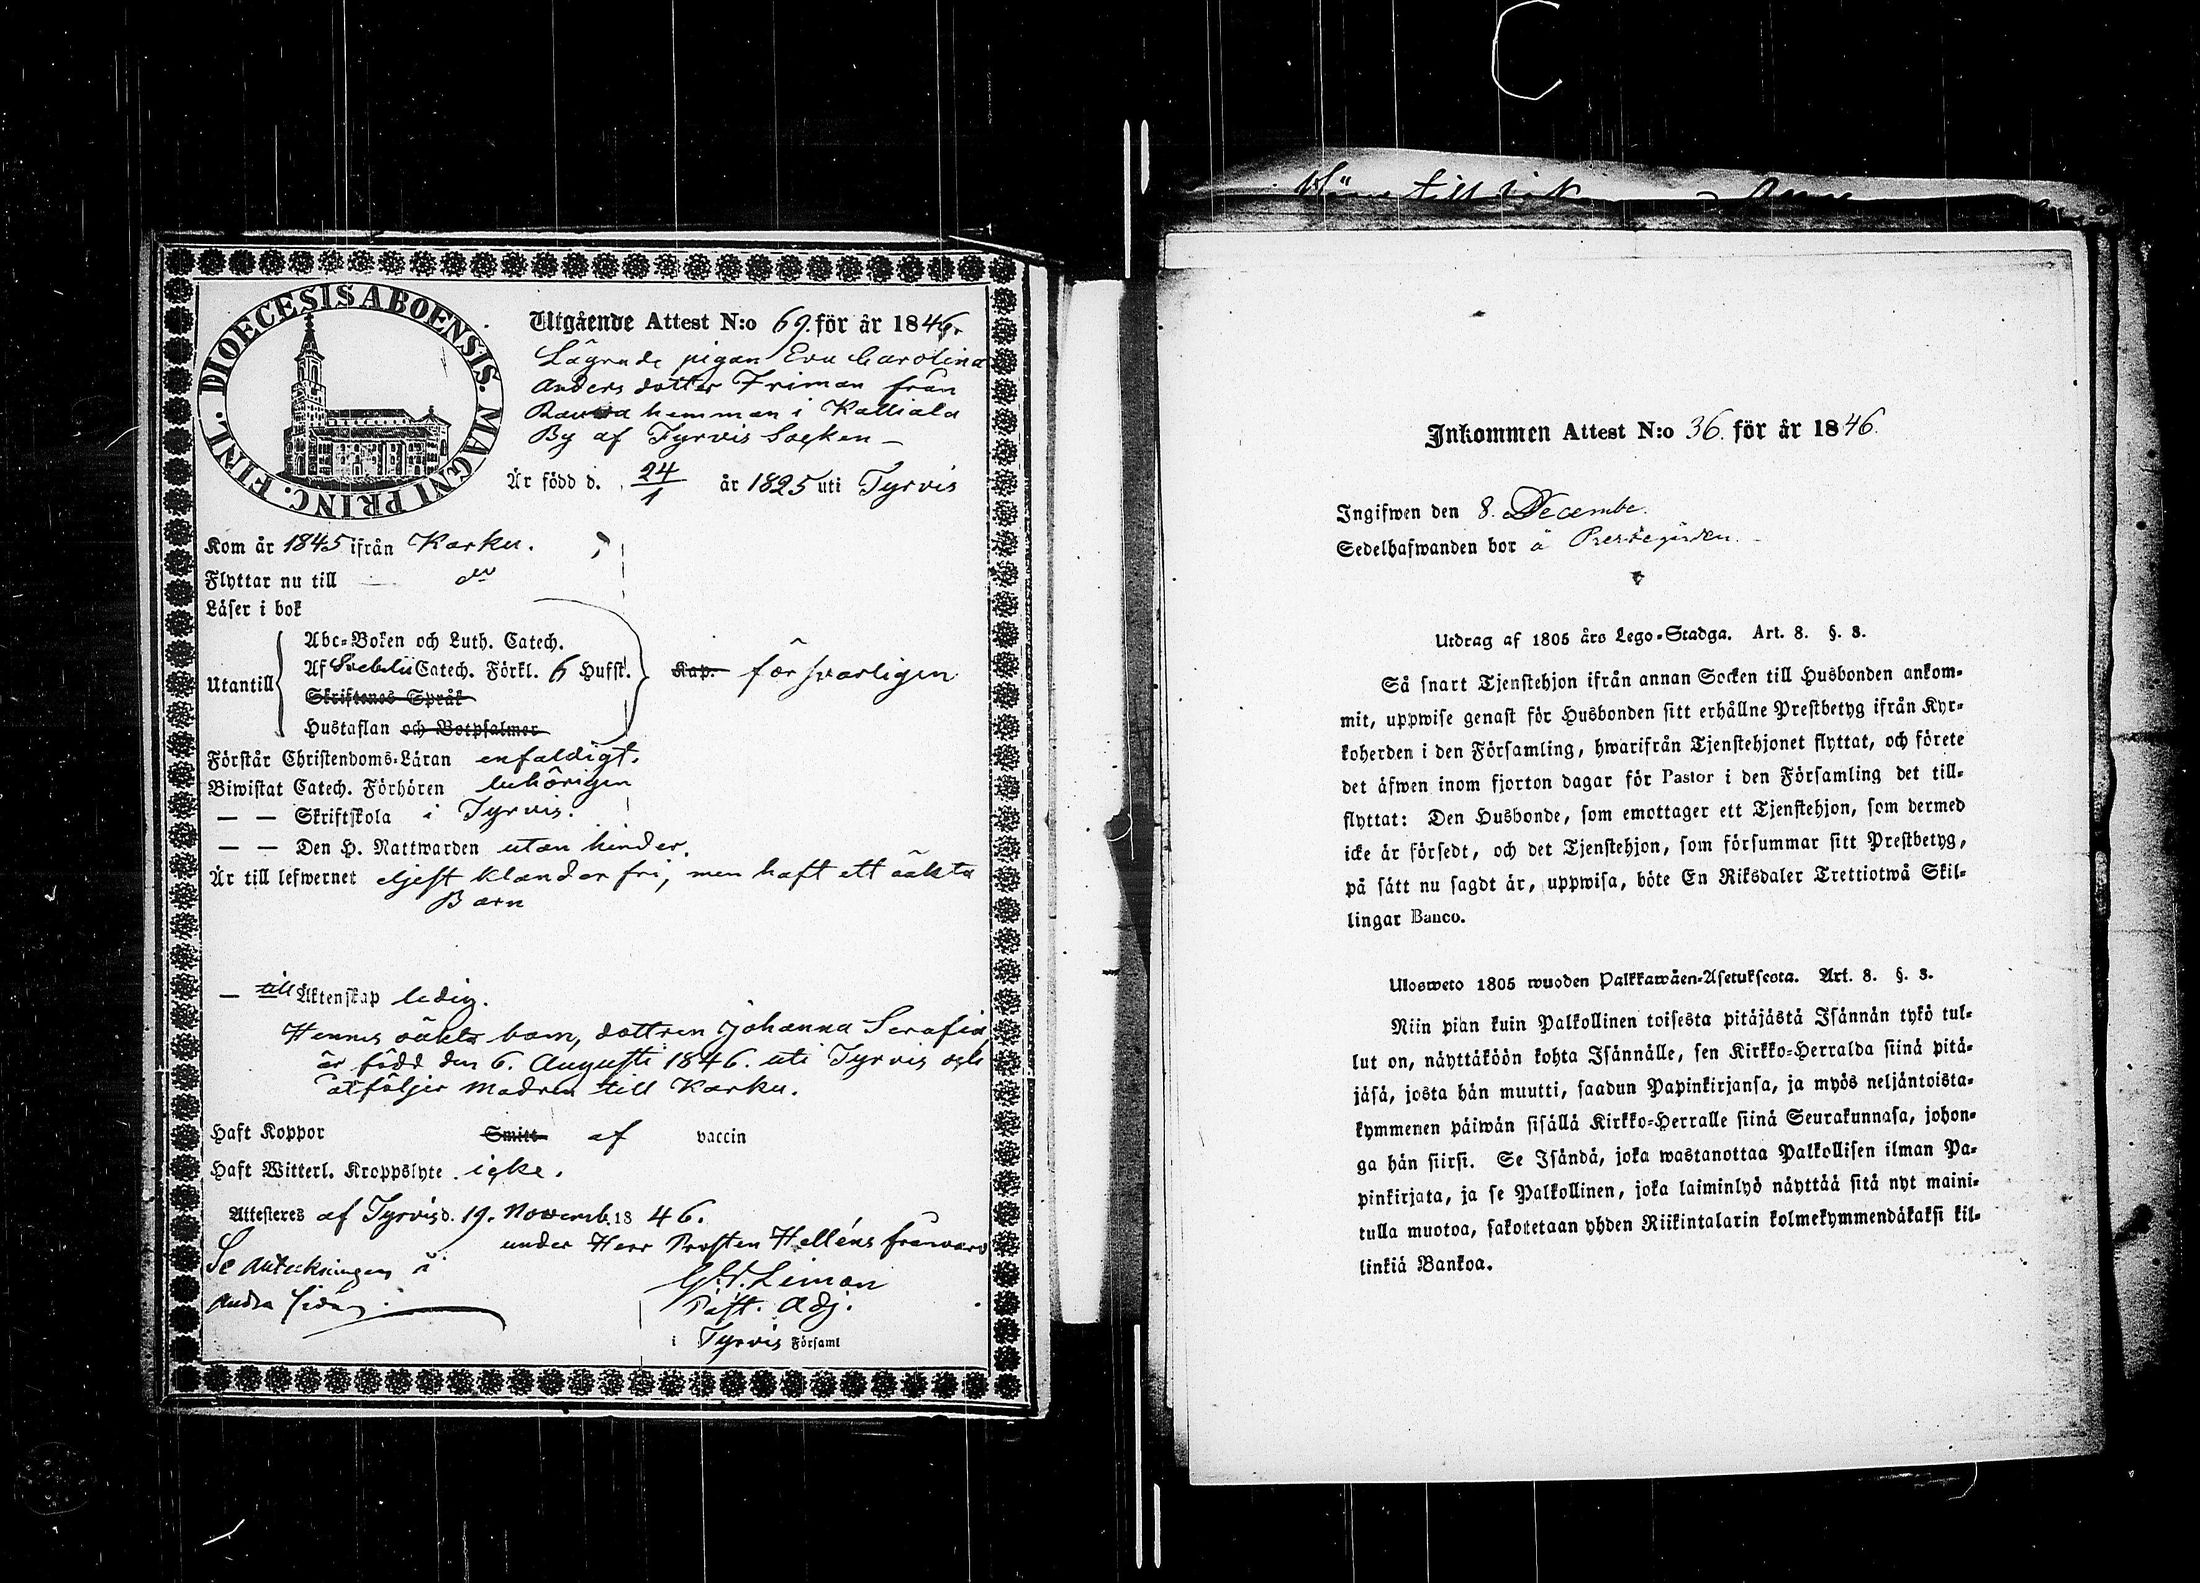 C
DIOECESIS ABOENSIS. MAGNI PRINC. FINL.
Utgående Attest N:o 69. för år 1846.
Lägrade pigan Eva Carolina
Anders dotter Friman från
hemman i Kalliala
By af Tyrvis Socken –
Är född d. 24/1 år 1825 uti Tyrvis
Kom år 1845 ifrån Karku.
Flyttar nu till do
Läser i bok
Abc-Boken och Luth. Catech.
Utantill Af Svebelii Catech. Förkl. 6 Hufst. Kap. försvarligen
Skriftenes Språk
Hustaflan och Botpsalmer
Förstår Christendoms-Läran enfaldigt.
Biwistat Catech. Förhören behörigen
— — Skriftskola i Tyrvis.
— — Den H. Nattwarden utan hinder.
Är till lefwernet eljest klander fri, men haft ett oäkta
Barn
— till Äktenskap ledig.
Hennes oäkta barn, dottren Johanna Serafia
är född den 6. Augusti 1846. uti Tyrvis och
åtföljer Modren till Karku.
Haft Koppor Smitt af vaccin
Haft Witterl. Kroppslyte icke.
Attesteres af Tyrvis d. 19. Novemb. 18 46.
under Herr Prosten Helléns frånvaro
Se Anteckningen å
Andra sidan.
Liman
Past. Adj.
i Tyrvis Församl
Inkommen Attest N:o 36. för år 1846.
Ingifwen den 8. Decembe.
Sedelhafwanden bor å Prestegården.
Utdrag af 1805 års Lego-Stadga. Art. 8. §. 8.
Så snart Tjenstehjon ifrån annan Socken till Husbonden ankom-
mit, uppwise genast för Husbonden sitt erhållne Prestbetyg ifrån Kyr-
koherden i den Församling, hwarifrån Tjenstehjonet flyttat, och förete
det äfwen inom fjorton dagar för Pastor i den Församling det till-
flyttat: Den Husbonde, som emottager ett Tjenstehjon, som dermed
icke är försedt, och det Tjenstehjon, som försummar sitt Prestbetyg,
på sätt nu sagdt är, uppwisa, böte En Riksdaler Trettiotwå Skil-
lingar Banco.
Ulosweto 1805 wuoden Palkkawäen-Asetuksesta. Art. 8. §. 8.
Niin pian kuin Palkollinen toisesta pitäjästä Isännän tykö tul-
lut on, näyttäköön kohta Isännälle, sen Kirkko-Herralda siinä pitä-
jäsä, josta hän muutti, saadun Papinkirjansa, ja myös neljäntoista-
kymmenen päiwän sisällä Kirkko-Herralle siinä Seurakunnasa, johon-
ga hän siirsi. Se Isändä, joka wastanottaa Palkollisen ilman Pa-
pinkirjata, ja se Palkollinen, joka laiminlyö näyttää sitä nyt maini-
tulla muotoa, sakotetaan yhden Riikintalarin kolmekymmendäkaksi kil-
linkiä Bankoa.